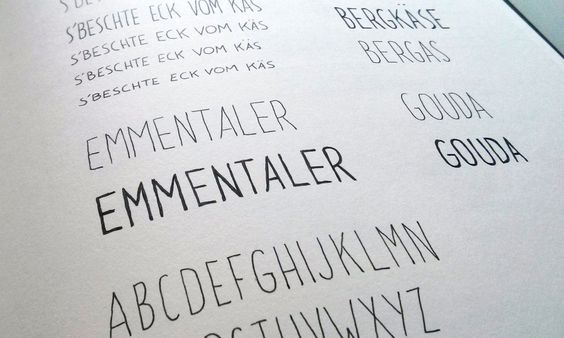 S'BESCHTE ECK VOM KÄS
S'BESCHTE ECK VOM KÄS
S'BESCHTE ECK VOM KÄS
S'BESCHTE ECK VOM KÄS
BERGKÄSE
BERGAS
EMMENTALER
GOUDA
EMMENTALER
GOUDA
ABCDEFGHIJKLMN
STUVWXYZ